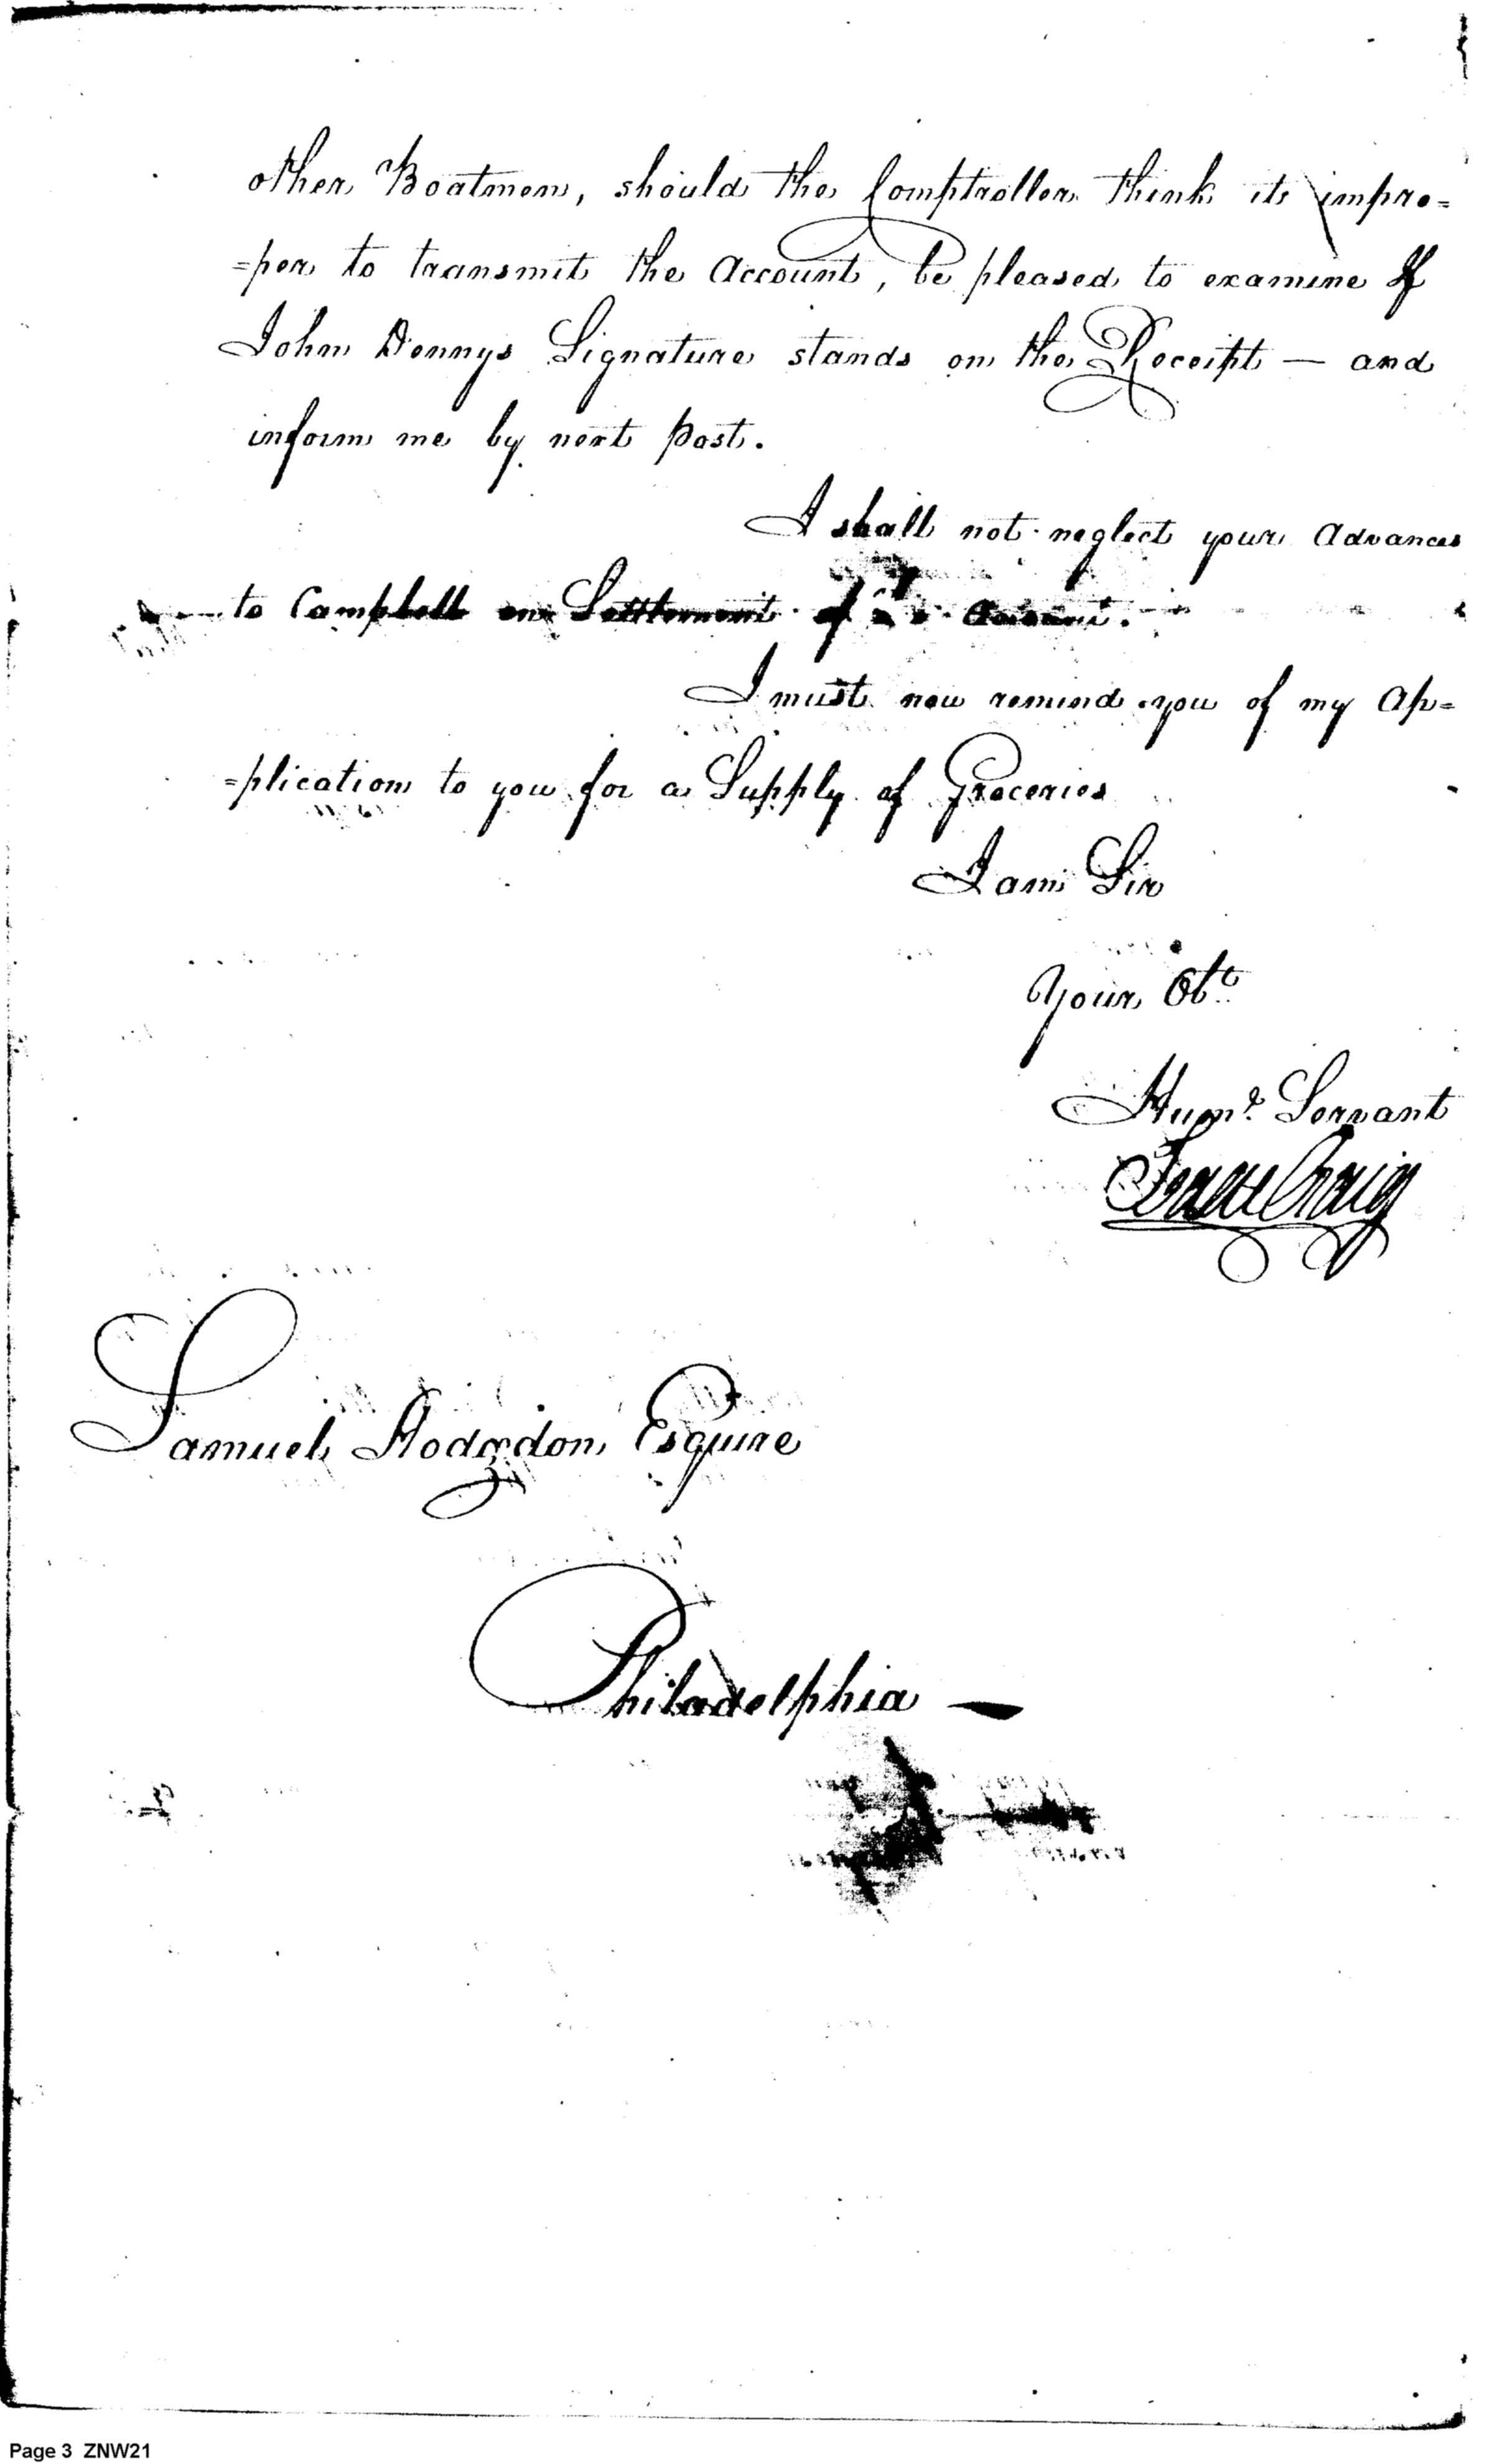 other Boatmen, should the Comptroller think its impro=
=per to transmit the Account, be pleased to examine If
John Dennys Signature stands on the Receipt — and
inform me by next post.
I shall not neglect your Advances
to Campbell on Settlement of Account.
I must now remind you of my Ap=
=plication to you for a Supply of Groceries
I am Sir
Your Obt
Hume Servant
Isaac Craig
Samuel Hodgdon Esquire
Philadelphia —
Page 3 ZNW21